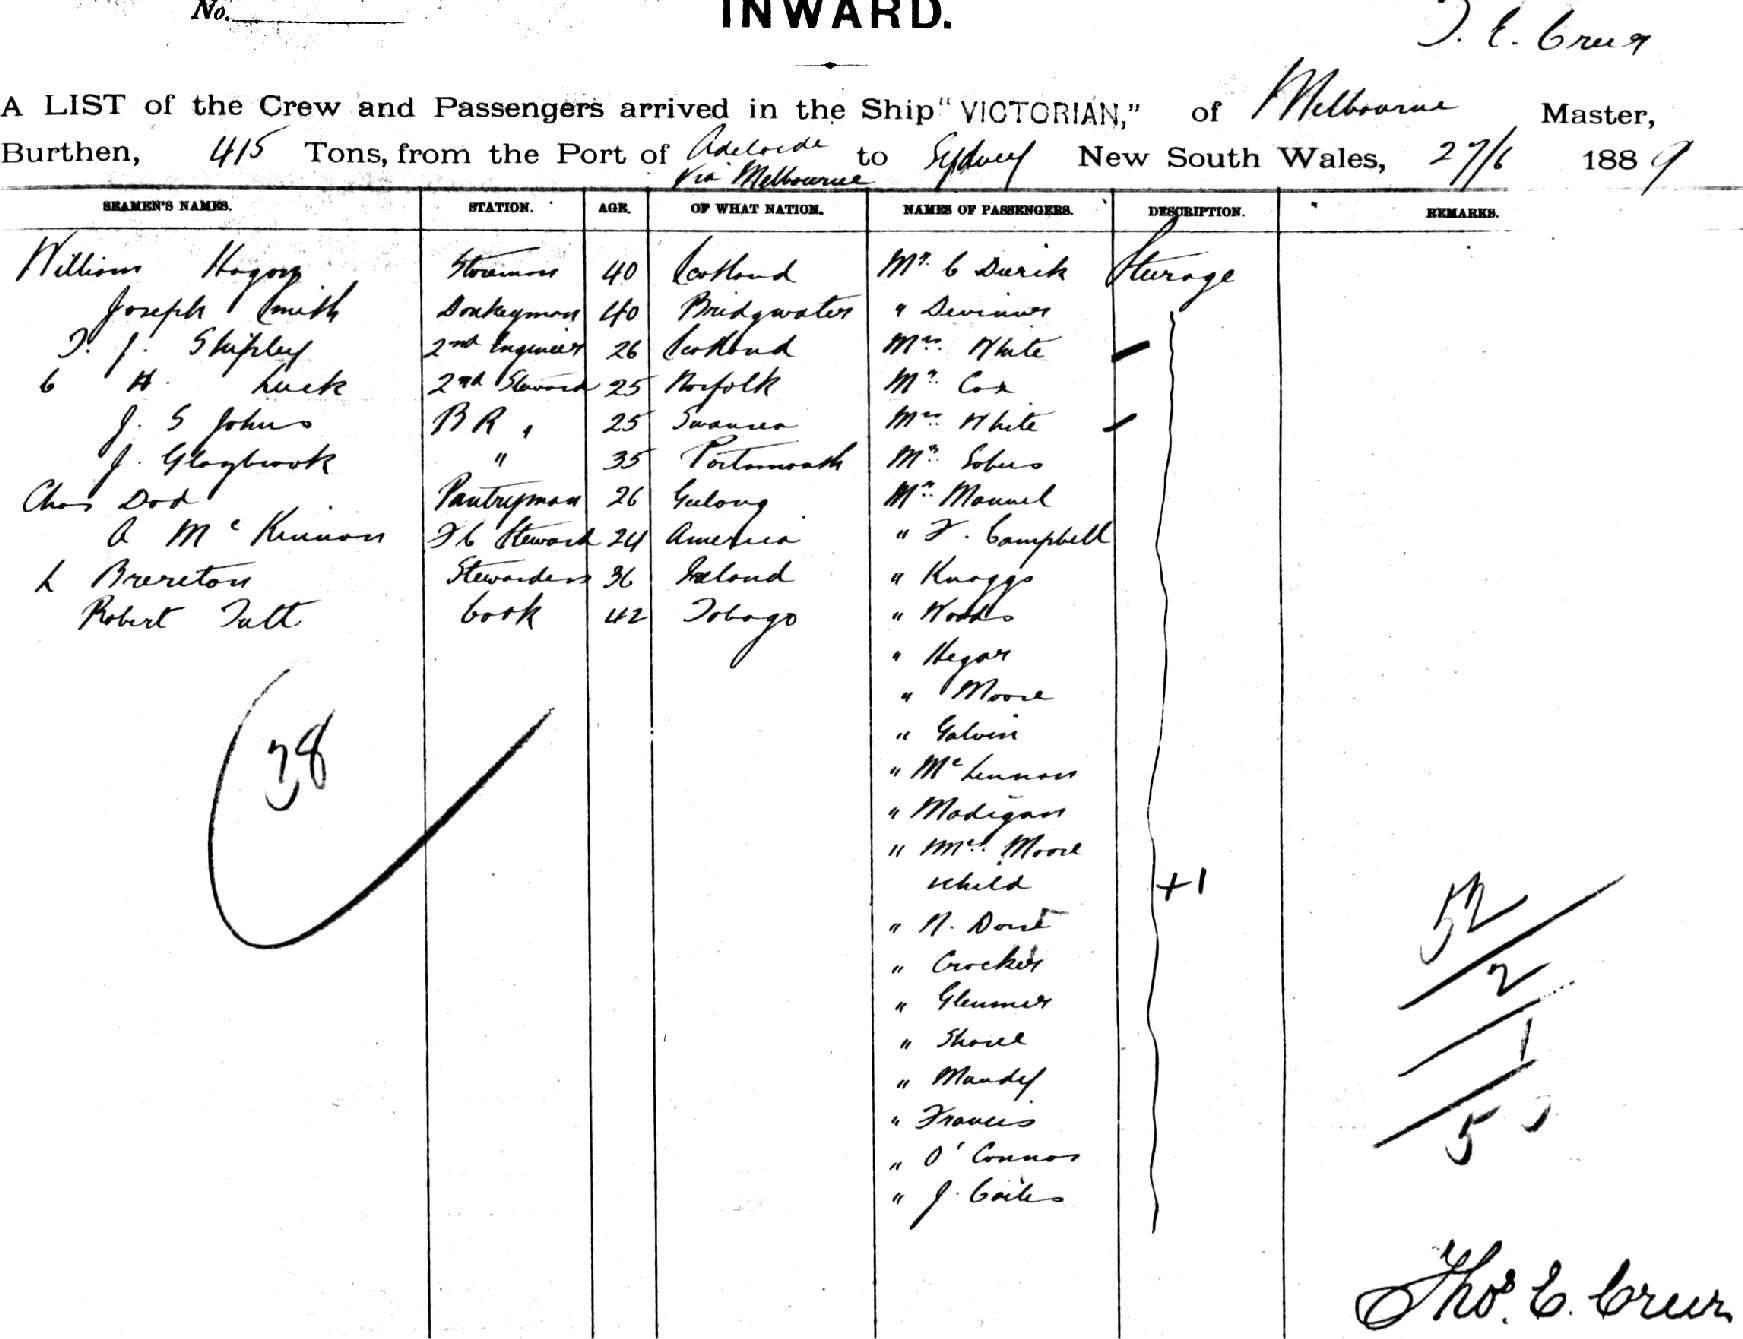 No.
INWARD.
T. E. Creer
A LIST of the Crew and Passengers arrived in the Ship "VICTORIAN," of Melbourne Master,
Burthen, 415 Tons, from the Port of Adelaide via Melbourne to Sydney New South Wales, 27/6 1889
SEAMEN'S NAMES. STATION. AGE. OF WHAT NATION. NAMES OF PASSENGERS. DESCRIPTION. REMARKS.
William 40 Scotland Mr. C Steerage
Joseph Smith Donkeyman 40 Bridgwater "
T. J. Shipley 2nd Engineer 26 Scotland Mrs. White
C H. Luck 2nd Steward 25 Norfolk Mr. Cox
J. S Johns B R " 25 Swansea Mrs. White
J. Glaybrook " 35 Portsmouth Mr.
Chas Dod Pantryman 26 Geelong Mr. Manuel
A McKinnon F C Steward 24 America " F. Campbell
L Brereton Stewardess 36 Ireland " Knaggs
Robert Tutt Cook 42 Tobago " Woods
" Hegar
" Moore
38
" Galvin
" McLennan
" Madigan
" Mrs. Moore
child +1
" N. 52
" Crocker
" 2
" Shore 1
" Mandy
" Francis 5
" O'Connor
" J.
Thos. E. Creer